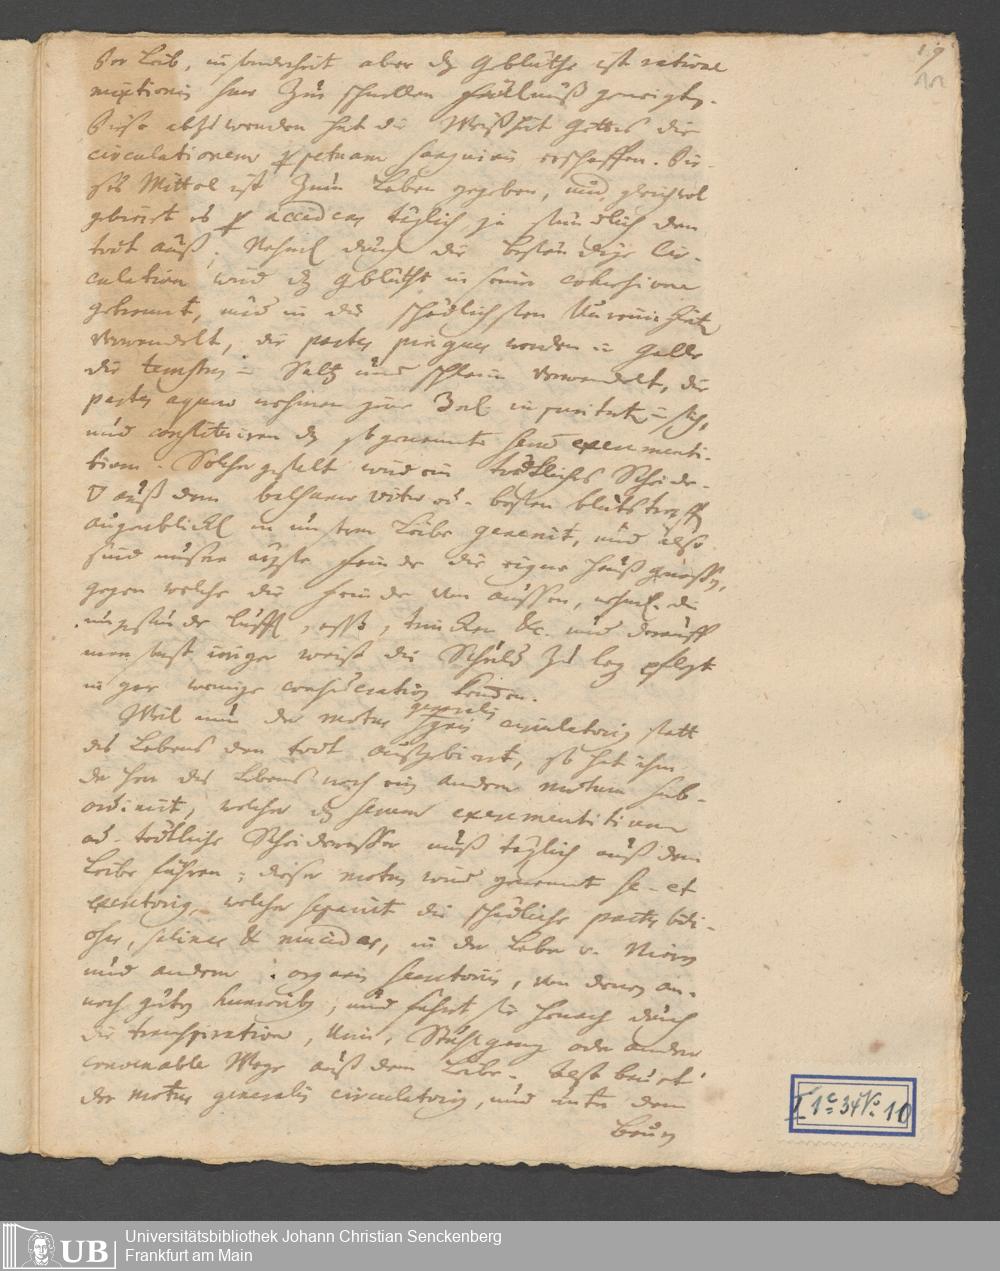 der Leib, insonderheit aber dz Geblüthe ist ratione
mixtionis zur schnellen Fäulnüß geneigt.
Diese abzuwenden hat die Weißheit Gottes die
circulationem perpetuam sanguinis erschaffen. Die-
ses Mittel ist zum Leben gegeben, und gleichwol
gebieret es per accidens täglich ja stündlich den
todt auß; Nehml durch die beständige Cir-
culation wird dz Geblüthe in seiner cohaesione
getrennt, und in die schädlichsten Unreinigkeit
verwandelt, die partes pingues werden in Galle
die in Saltz und schleim verwandelt, die
partes aqueae nehmen zum Theil in sich,
und constituiren dz so genannte serum excrementi-
tium. Solcher gestalt wird ein tödtliches Scheide-
auß dem balsamo vitae od. besten blutstropffen
augenblickl in unserm Leibe generirt, und also
sind unsere ärgste feinde die eigne Haußgenossen,
gegen welche die feinde von aussen, nehml. die
ungesunde lufft, esse, trincken &c. und darauff
man fast einige meist die Schuld zu legen pflegt
in gar wenige consideration
Weil nun der motus generalis circulatorius statt
des Lebens den todt außgebieret, so hat ihm
der Herr des Lebens noch ein andern motum sub-
ordinirt, welcher dz serum excrementitium
od. tödtliche Scheidewasser muß täglich auß dem
Leibe führen; dieser motus wird genennt se- et
excretorius, welcher separirt die schädliche partes bili-
osas, salinas & mucidas, in der Leber u. Nieren
und andern organis secretoriis, von denen an-
noch guten humoribus, und führet sie hernach durch
die transpiration, Urin, Stuhlgang oder andere
convenable Wege auß dem Leibe.
der motus generalis circulatorius, und unter dem
I 1c 34 No 10
Universitätsbibliothek Johann Christian Senckenberg
Frankfurt am Main
UB